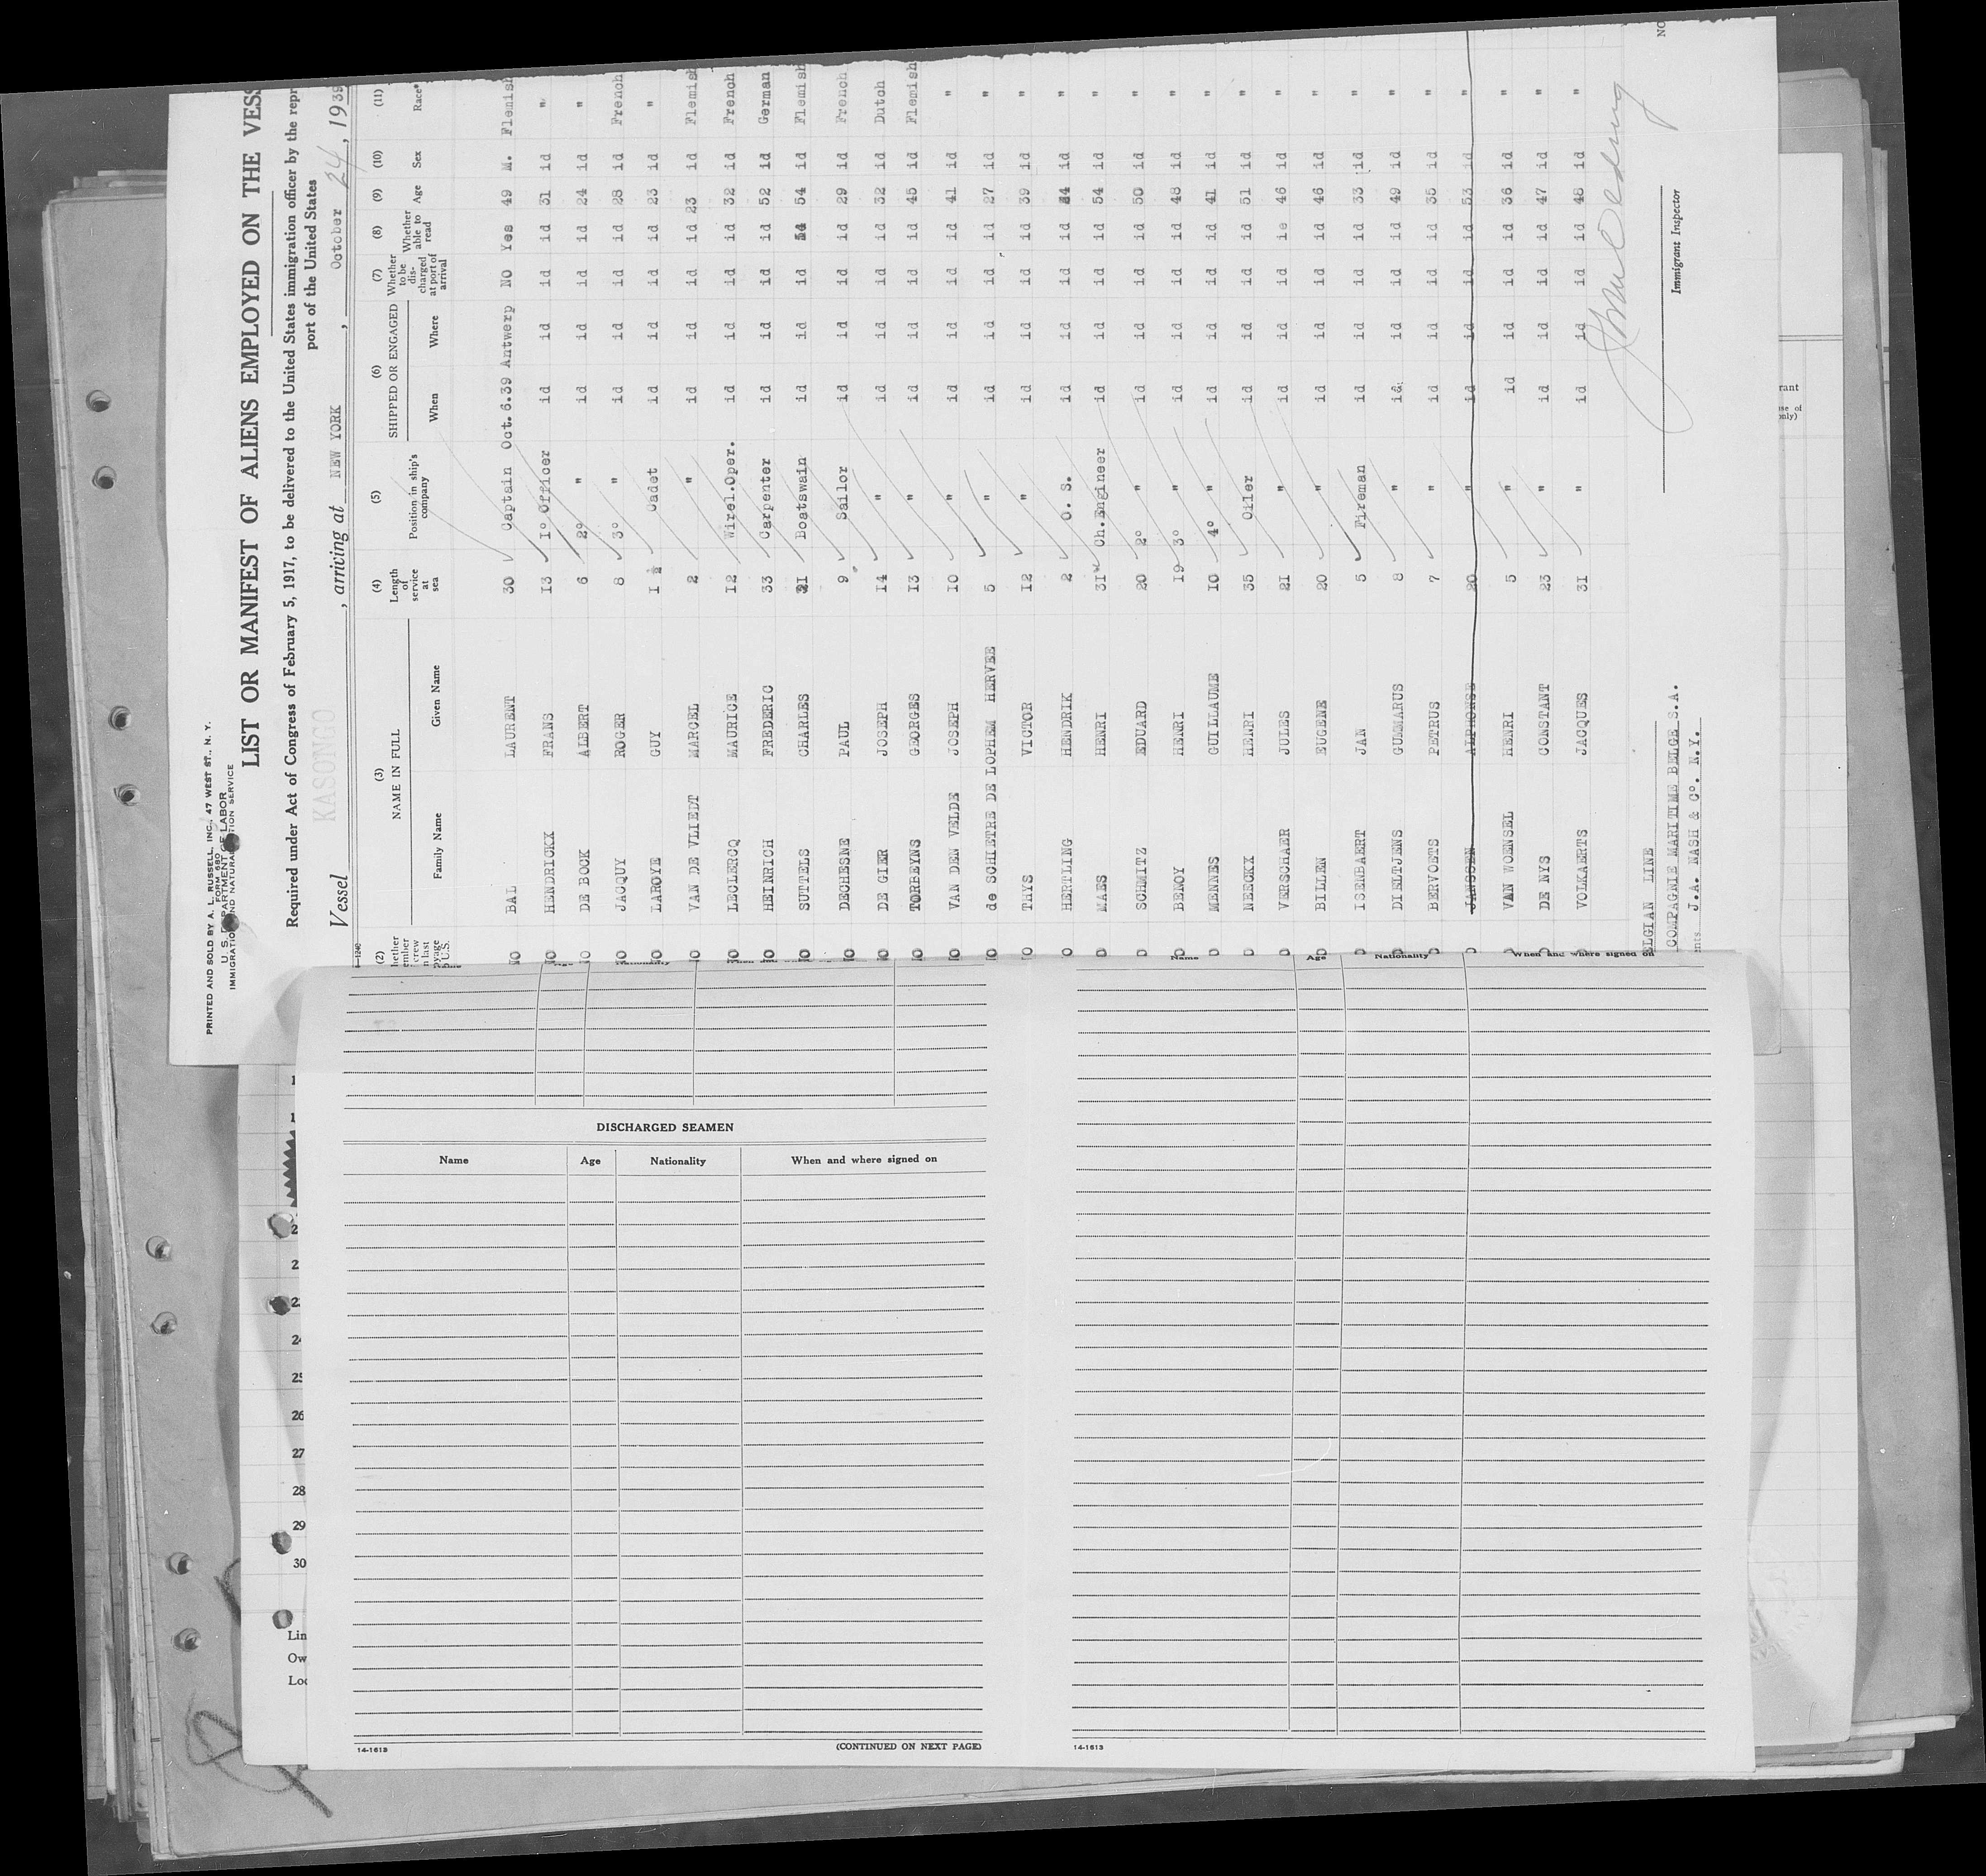 PRINTED AND SOLD BY A. L. RUSSELL, INC., 47 WEST ST., N. Y.
FORM 680
U. S. DEPARTMENT OF LABOR
IMMIGRATION AND NATURALIZATION SERVICE
LIST OR MANIFEST OF ALIENS EMPLOYED ON THE VESS
Required under Act of Congress of February 5, 1917, to be delivered to the United States immigration officer by the repr
port of the United States
Vessel KASONGO, arriving at NEW YORK, October 24, 1939
(2) (3) (4) (5) (6) (7) (8) (9) (10) (11)
NAME IN FULL Length of service at sea Position in ship's company SHIPPED OR ENGAGED Whether to be discharged at port of arrival Whether able to read Age Sex Race*
Family Name Given Name When Where
NO BAL LAURENT 30 Captain Oct.6.39 Antwerp NO Yes 49 M. Flemish
NO HENDRICKX FRANS 13 1° Officer id id id id 31 id "
NO DE BOCK ALBERT 6 2° " id id id id 24 id "
NO JACQUY ROGER 8 3° " id id id id 28 id French
NO LAROYE GUY 1 ½ Cadet id id id id 23 id "
NO VAN DE VLIEDT MARCEL 2 " id id id id 23 id Flemish
NO LECLERCQ MAURICE 12 Wirel.Oper. id id id id 32 id French
NO HEINRICH FREDERIC 33 Carpenter id id id id 52 id German
NO SUTTELS CHARLES 21 Boatswain id id id 54 id Flemish
NO DECHESNE PAUL 9 Sailor id id id id 29 id French
NO DE GIER JOSEPH 14 " id id id id 32 id Dutch
NO TORBEYNS GEORGES 13 " id id id id 45 id Flemish
NO VAN DEN VELDE JOSEPH 10 " id id id id 41 id "
NO de SCHIETRE DE LOPHEM HERVEE 5 " id id id id 27 id "
NO THYS VICTOR 12 " id id id id 39 id "
O HERTLING HENDRIK 2 O. S. id id id id id "
D MAES HENRI 31 Ch.Engineer id id id id 54 id "
D SCHMITZ EDUARD 20 2° " id id id id 50 id "
D BENOY HENRI 19 3° " id id id id 48 id "
D MENNES GUILLAUME 10 4° " id id id id 41 id "
D NEECKX HENRI 35 Oiler id id id id 51 id "
D VERSCHAER JULES 21 " id id id id 46 id "
D BILLEN EUGENE 20 " id id id id 46 id "
D ISENBAERT JAN 5 Fireman id id id id 33 id "
D DIELTJENS GUMMARUS 8 " id id id id 49 id "
D BERVOETS PETRUS 7 " id id id id 35 id "
D JANSSEN ALPHONSE 20 " id id id id 53 id "
D VAN WOENSEL HENRI 5 " id id id id 36 id "
D DE NYS CONSTANT 23 " id id id id 47 id "
D VOLKAERTS JACQUES 31 " id id id id 48 id "
ELGIAN LINE
COMPAGNIE MARITIME BELGE S.A.
nts J.A. NASH & C°. N.Y.
Immigrant Inspector
NO
rant
se of
only)
Age Nationality When and where signed on
DISCHARGED SEAMEN
Name Age Nationality When and where signed on
14-1613
(CONTINUED ON NEXT PAGE)
Name Age Nationality When and where signed on
14-1613
24
25
26
27
28
29
30
Lin
Ow
Loc